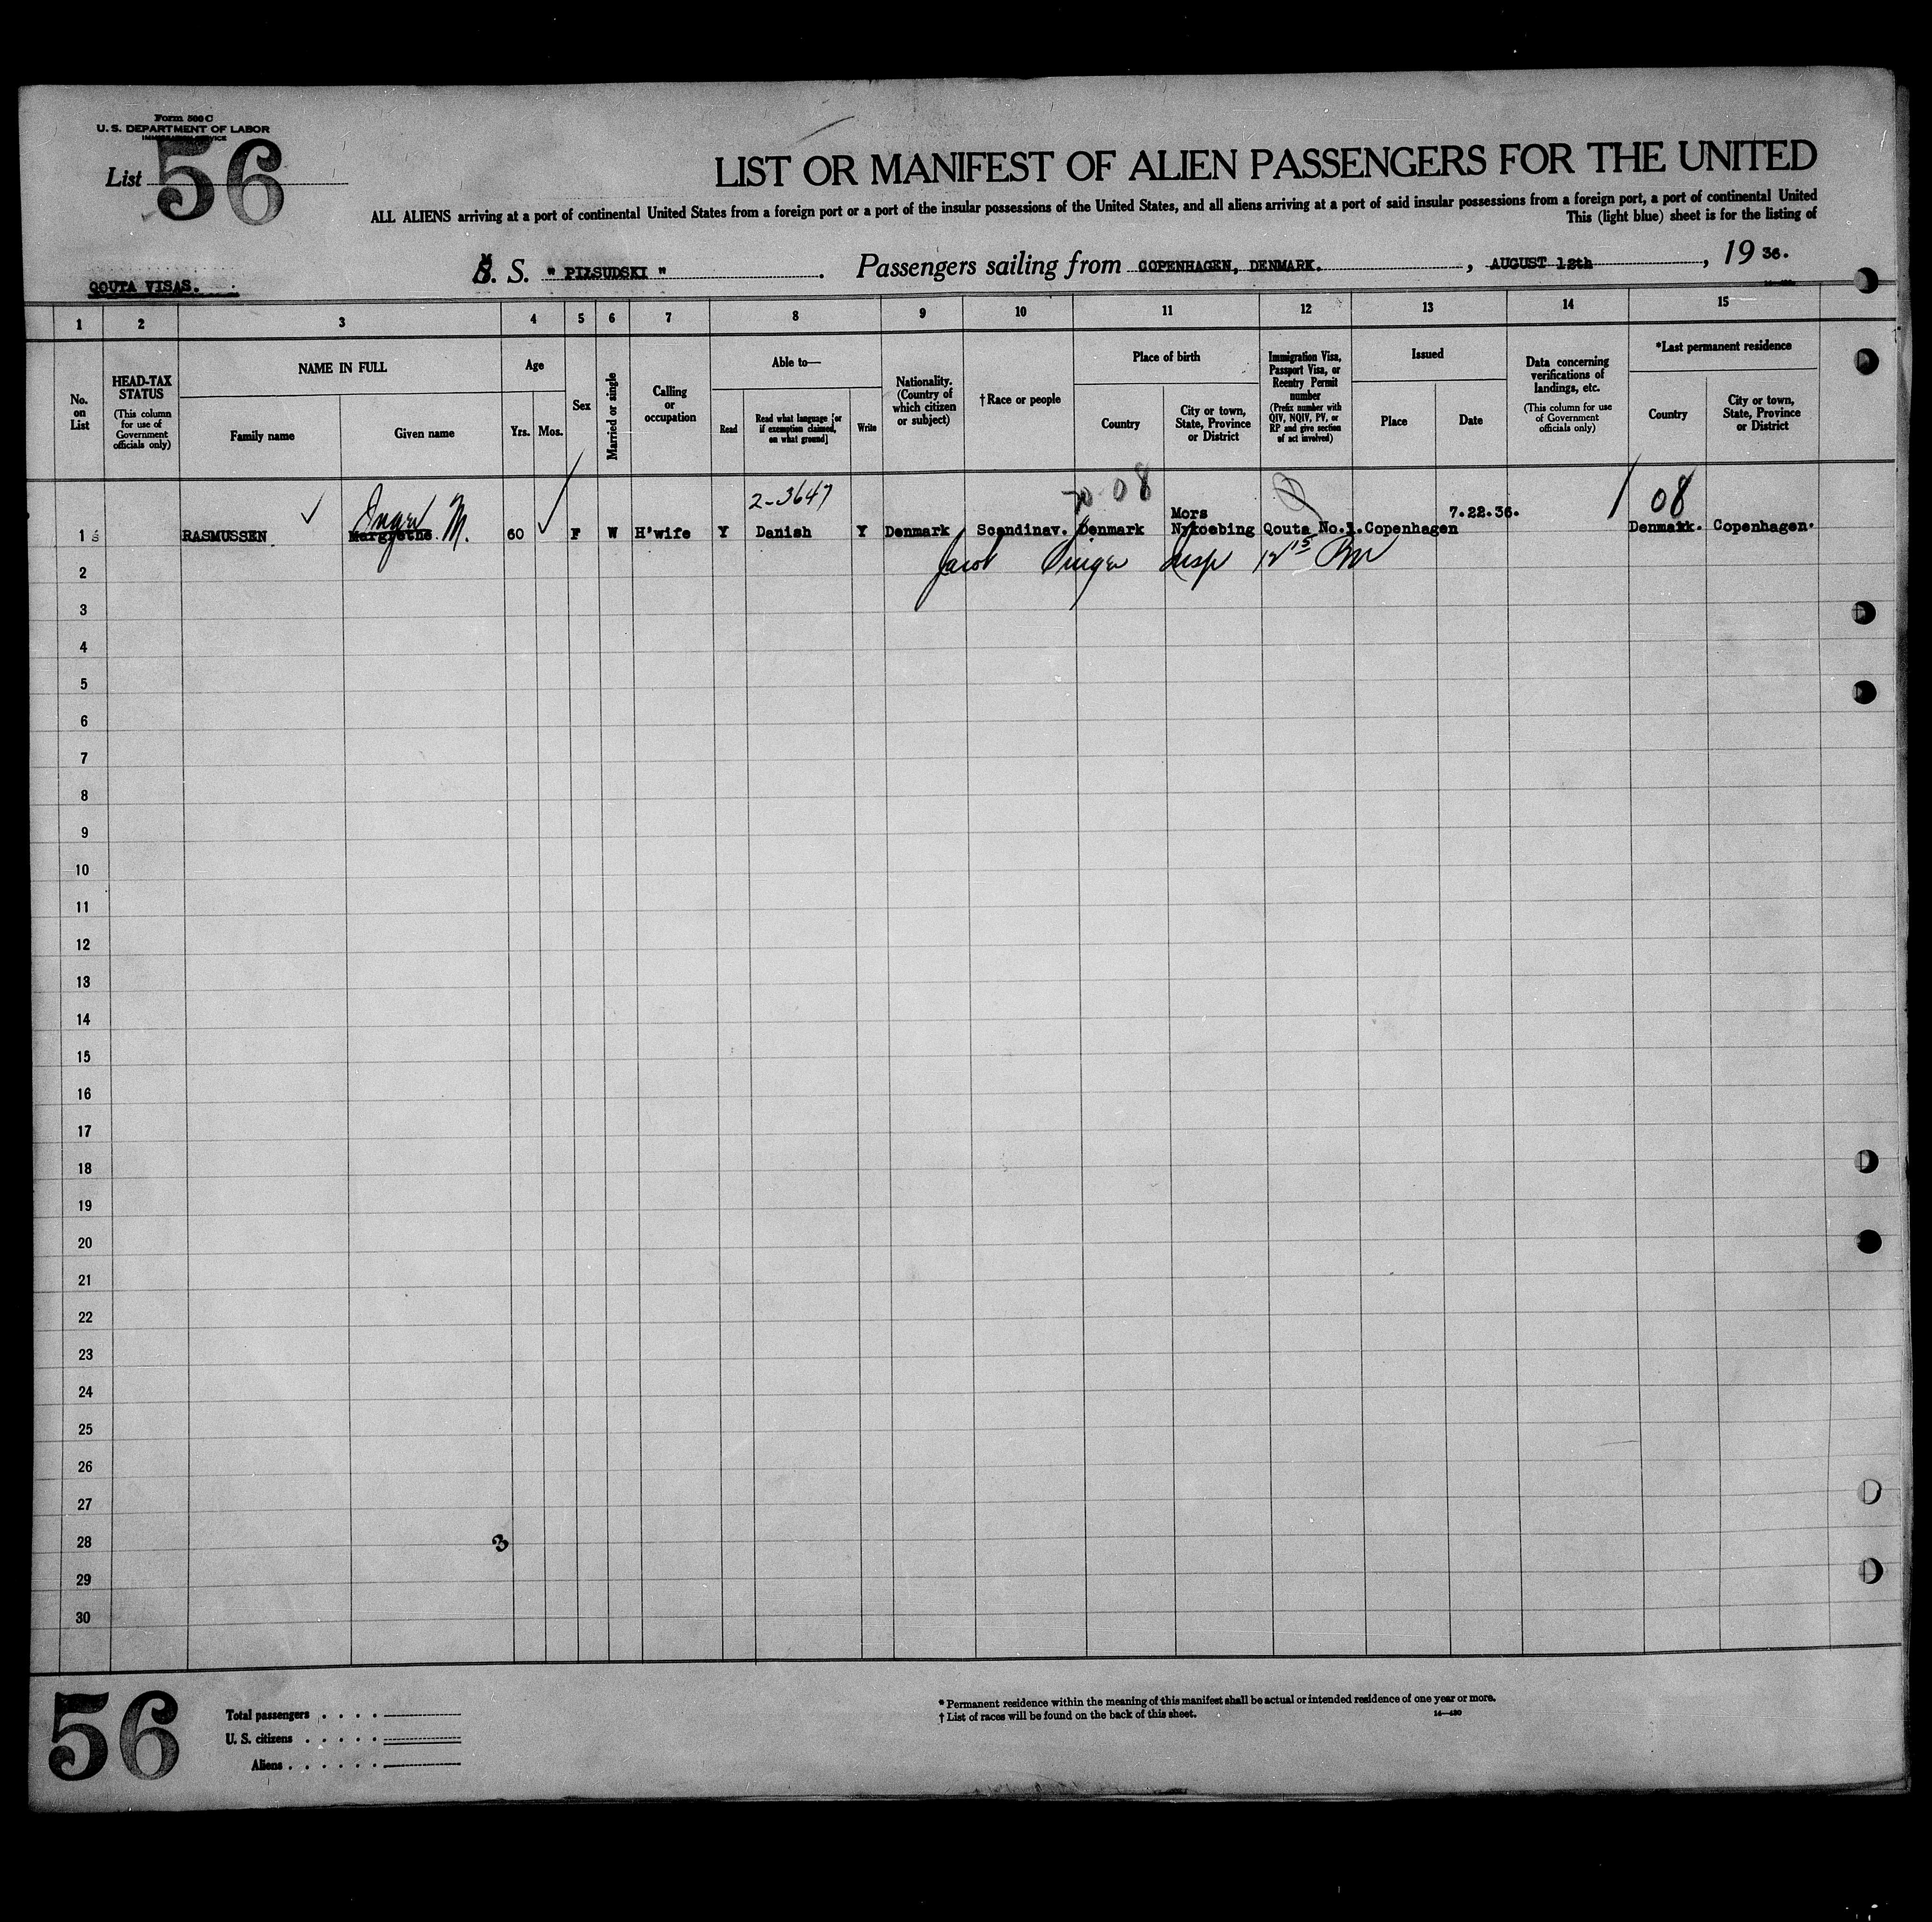 Form 500 C
U. S. DEPARTMENT OF LABOR
IMMIGRATION SERVICE
List 56
LIST OR MANIFEST OF ALIEN PASSENGERS FOR THE UNITED
ALL ALIENS arriving at a port of continental United States from a foreign port or a port of the insular possessions of the United States, and all aliens arriving at a port of said insular possessions from a foreign port, a port of continental United
This (light blue) sheet is for the listing of
S. "PIŁSUDSKI". Passengers sailing from COPENHAGEN, DENMARK., AUGUST 12th, 19 36.
QOUTA VISAS.
1 2 3 4 5 6 7 8 9 10 11 12 13 14 15
No. on List
HEAD-TAX STATUS
(This column for use of Government officials only)
NAME IN FULL
Family name
Given name
Age
Yrs. Mos.
Sex
Married or single
Calling or occupation
Able to—
Read
Read what language [or if exemption claimed, on what ground]
Write
Nationality. (Country of which citizen or subject)
†Race or people
Place of birth
Country
City or town, State, Province or District
Immigration Visa, Passport Visa, or Reentry Permit number
(Prefix number with QIV, NQIV, PV, or RP and give section of act involved)
Issued
Place
Date
Data concerning verifications of landings, etc.
(This column for use of Government officials only)
*Last permanent residence
Country
City or town, State, Province or District
2-3647
08
08
Inger M.
Mors
7.22.36.
1 RASMUSSEN Margrethe 60 F W H'wife Y Danish Y Denmark Scandinav. Denmark Nykoebing Qouta No.1. Copenhagen Denmark. Copenhagen.
Jacob Insp 12 15 PM
2
3
4
5
6
7
8
9
10
11
12
13
14
15
16
17
18
19
20
21
22
23
24
25
26
27
28
3
29
30
56
Total passengers . . . .
U. S. citizens . . . . .
Aliens . . . . . .
* Permanent residence within the meaning of this manifest shall be actual or intended residence of one year or more.
† List of races will be found on the back of this sheet.
14—430